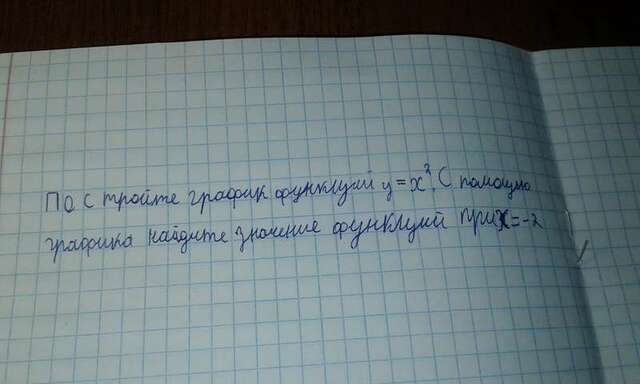 Постройте график функций y = x². С помощию
графика найдите значение функций при x = -2